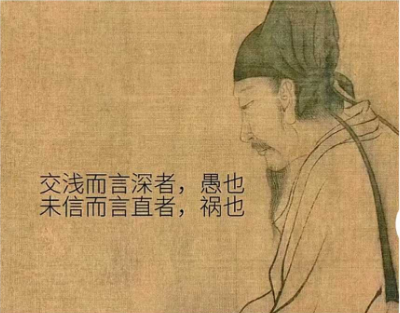 交浅而言深者，愚也
未信而言直者，祸也